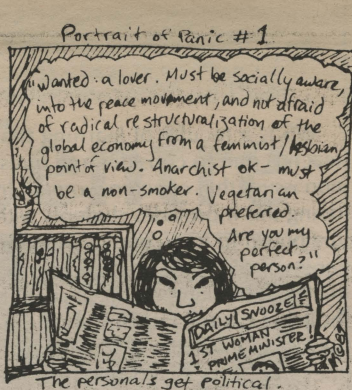 Portrait of Panic # 1
"Wanted: a lover. Must be socially aware,
into the peace movement, and not afraid
of radical restructuralization of the
global economy from a feminist/lesbian
point of view. Anarchist ok - must
be a non-smoker. Vegetarian
preferred.
Are you my
perfect
person?"
DAILY SNOOZE
1ST WOMAN
PRIME MINISTER!
The personals get political.